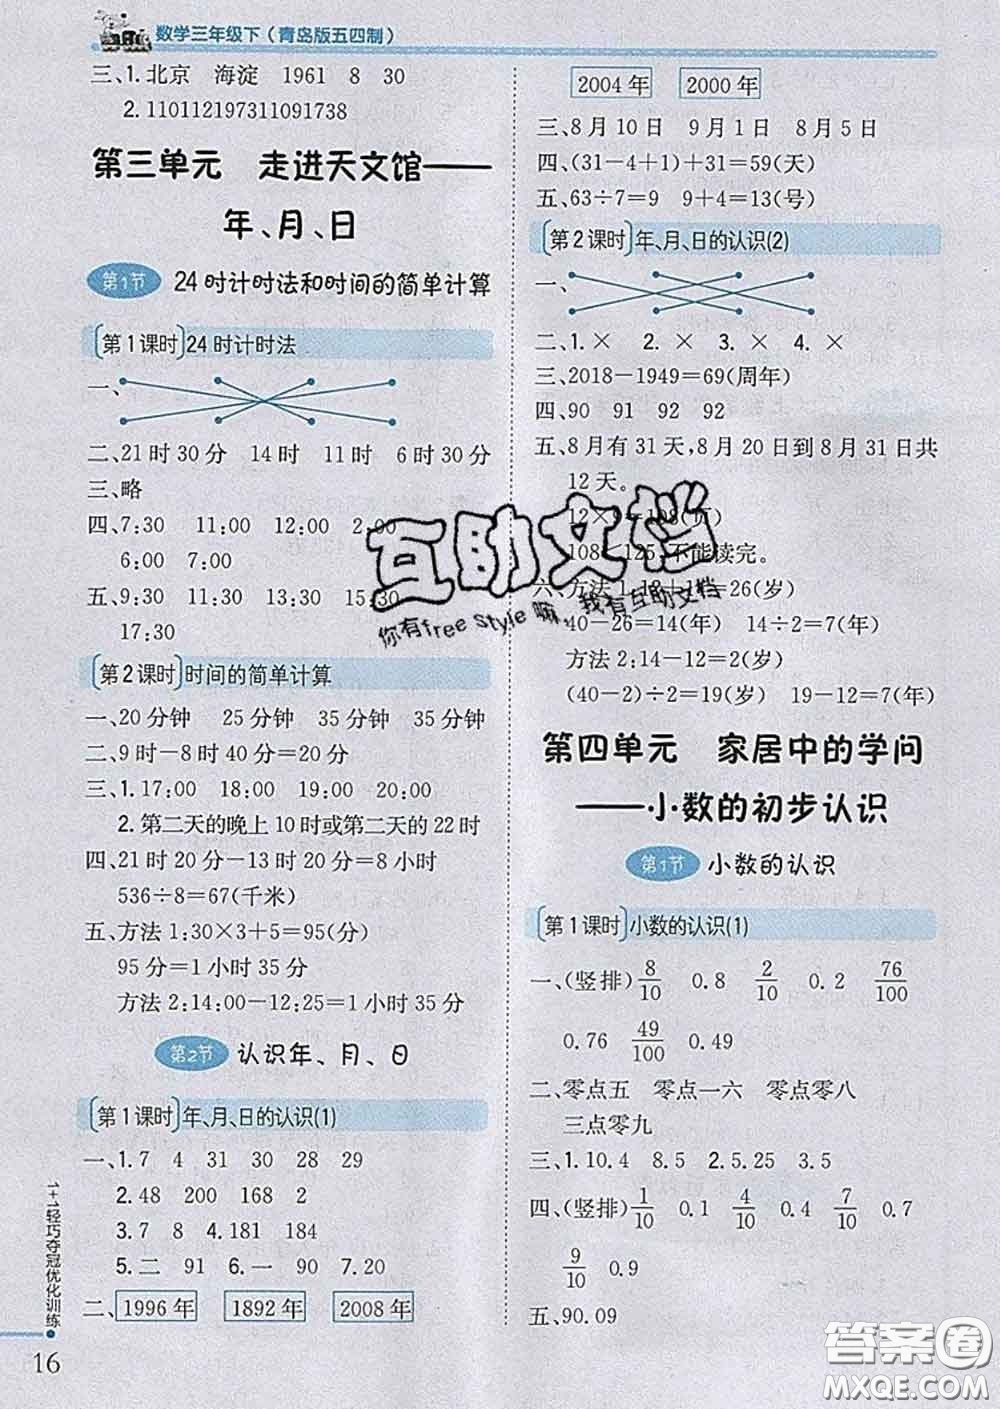 数学三年级下(青岛版五四制)
三、1.北京 海淀 1961 8 30
2.110112197311091738
第三单元 走进天文馆——
年、月、日
第1节 24时计时法和时间的简单计算
第1课时 24时计时法
一、
二、21时30分 14时 11时 6时30分
三、略
四、7:30 11:00 12:00 2:00
6:00 7:00
五、9:30 11:30 13:30 15:30
17:30
第2课时 时间的简单计算
一、20分钟 25分钟 35分钟 35分钟
二、9时-8时40分=20分
三、1.17:00 18:00 19:00 20:00
2.第二天的晚上10时或第二天的22时
四、21时20分-13时20分=8小时
536÷8=67(千米)
五、方法1:30×3+5=95(分)
95分=1小时35分
方法2:14:00-12:25=1小时35分
第2节 认识年、月、日
第1课时 年、月、日的认识(1)
一、1.7 4 31 30 28 29
2.48 200 168 2
3.7 8 4.181 184
5.二 91 6.一 90 7.20
二、1996年 1892年 2008年
1+1轻巧夺冠优化训练
16
2004年 2000年
三、8月10日 9月1日 8月5日
四、(31-4+1)+31=59(天)
五、63÷7=9 9+4=13(号)
第2课时 年、月、日的认识(2)
一、
二、1.× 2.× 3.× 4.×
三、2018-1949=69(周年)
四、90 91 92 92
五、8月有31天,8月20日到8月31日共
12天。
108 125,不能读完。
六、方法1: =26(岁)
40-26=14(年) 14÷2=7(年)
方法2:14-12=2(岁)
(40-2)÷2=19(岁) 19-12=7(年)
第四单元 家居中的学问
——小数的初步认识
第1节 小数的认识
第1课时 小数的认识(1)
一、(竖排) 8/10 0.8 2/10 0.2 76/100
0.76 49/100 0.49
二、零点五 零点一六 零点零八
三点零九
三、1.10.4 8.5 2.5.25 3.5
四、(竖排) 1/10 0.1 4/10 0.4 7/10 0.7
9/10 0.9
五、90.09
互助文档
你有free Style嘛,我有互助文档
答案圈
MXQE.COM